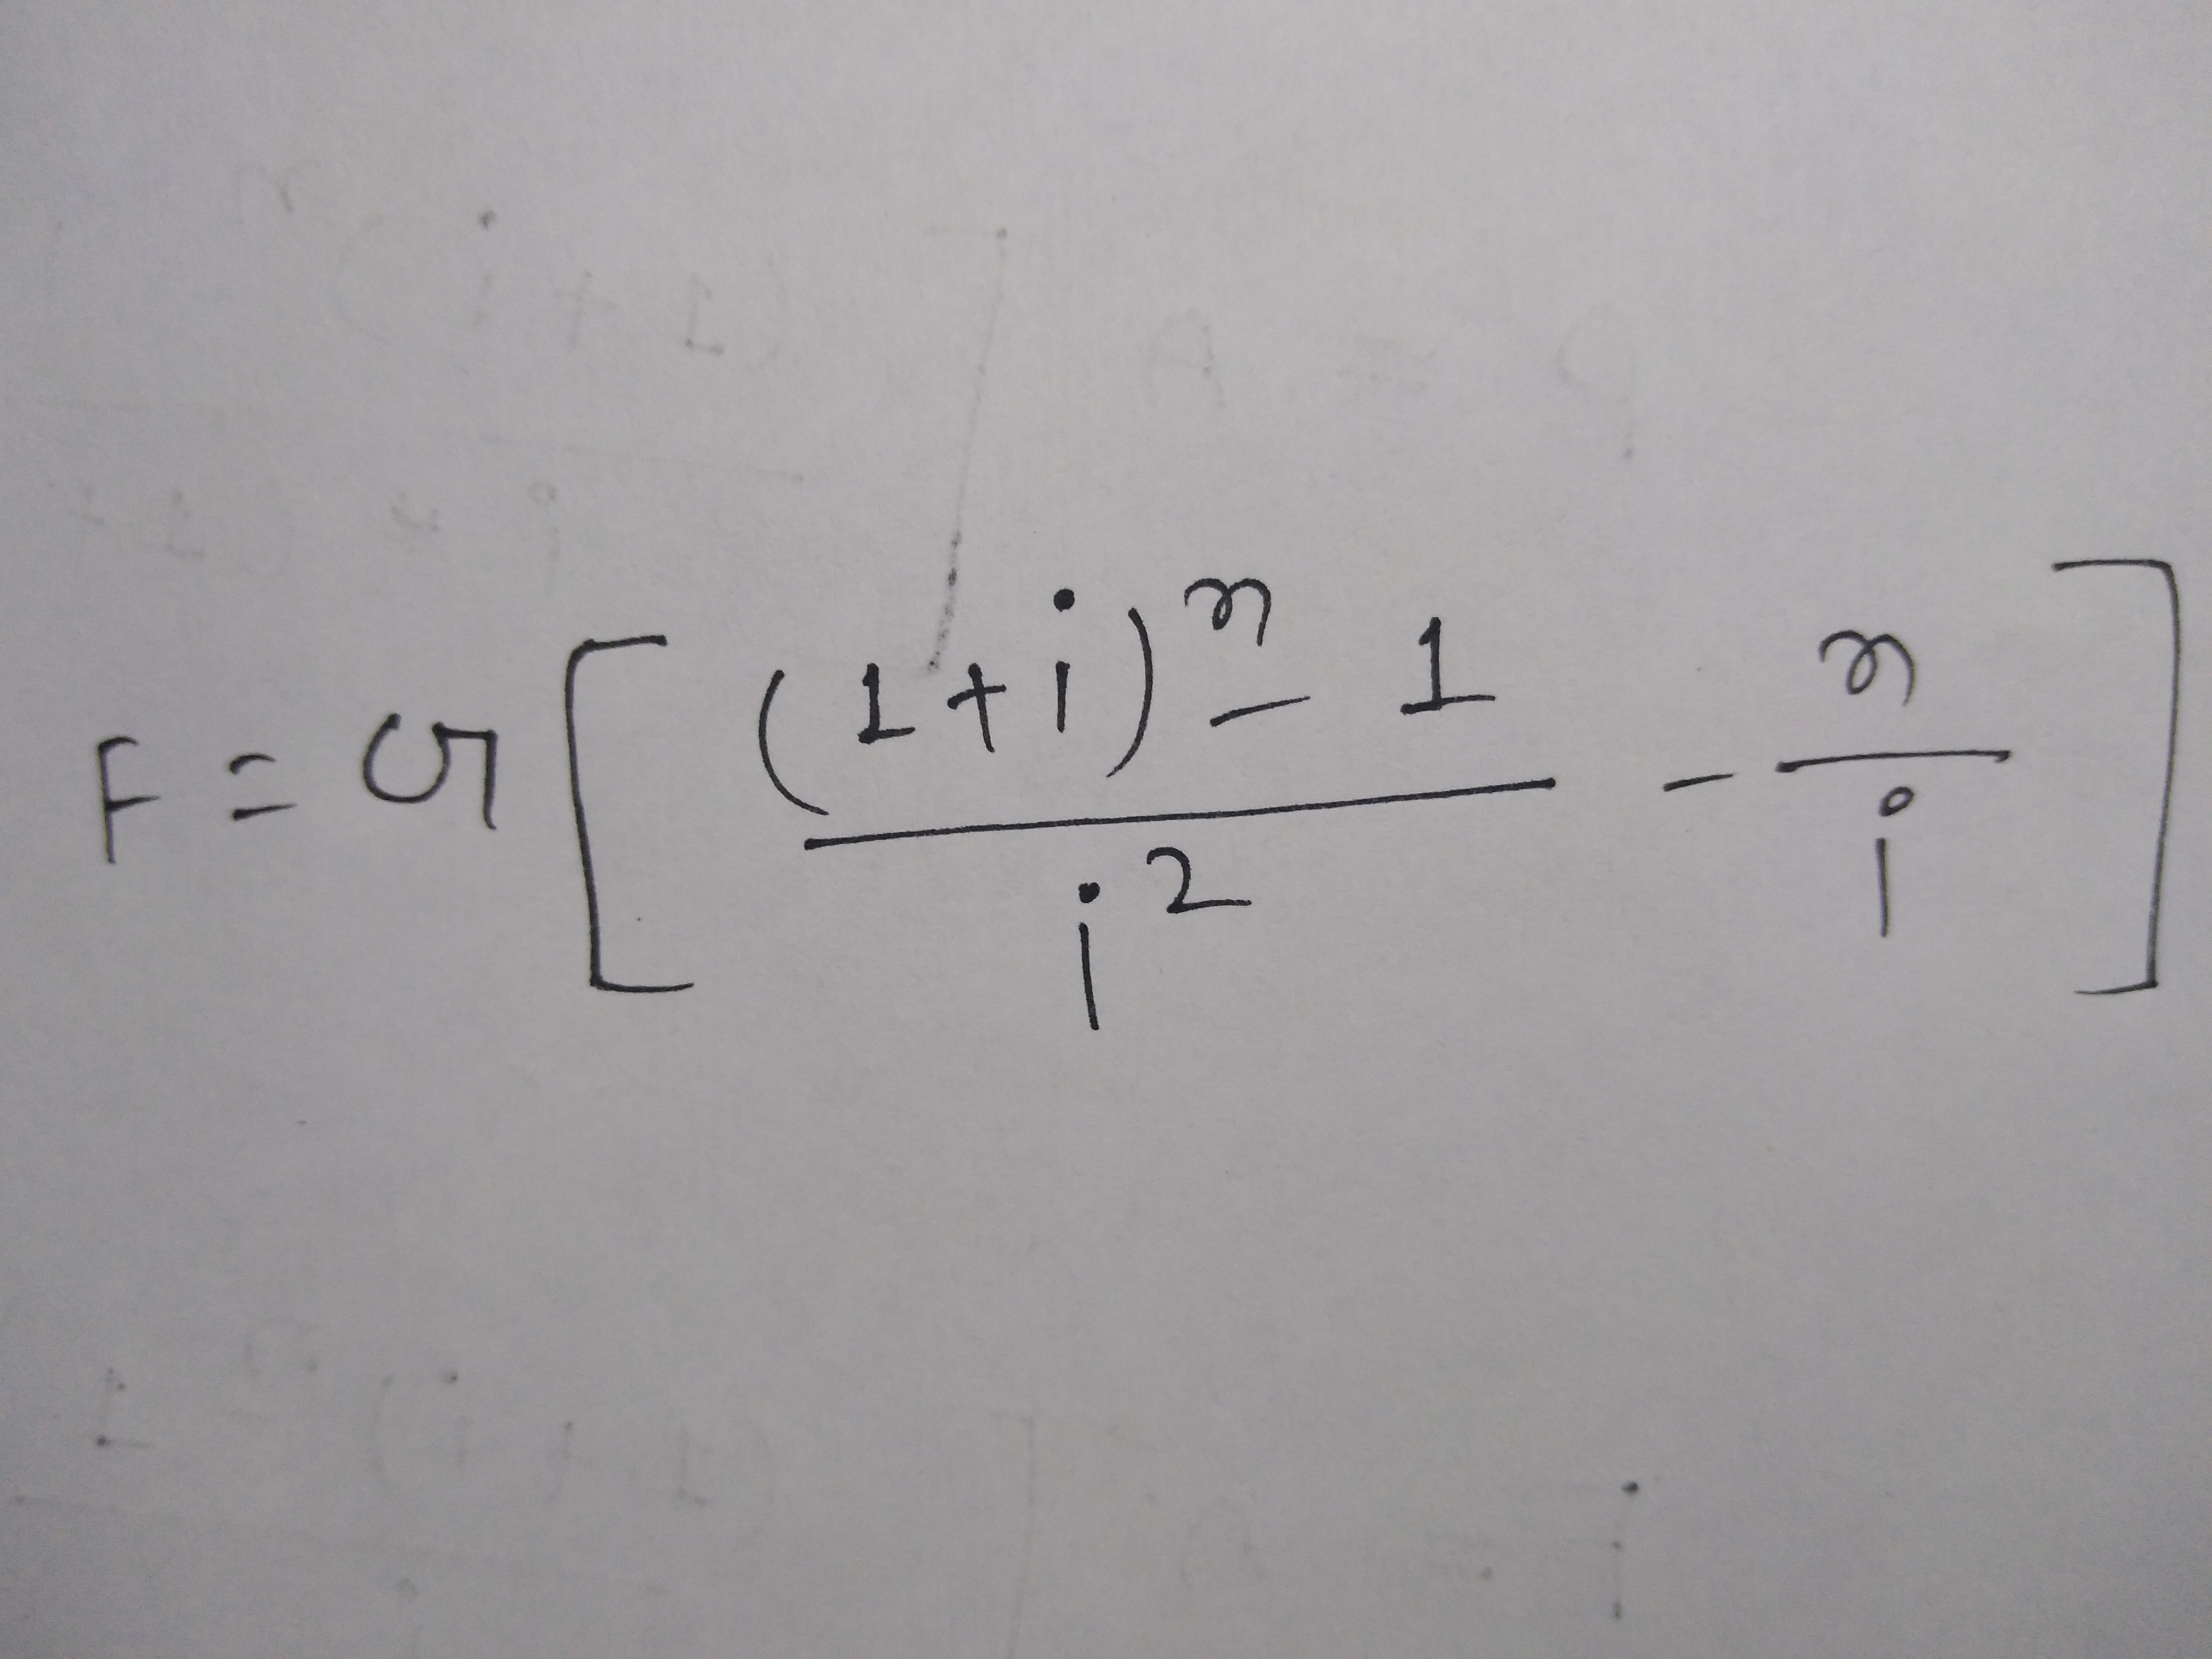 F = G [ ((1+i)^n - 1)/i^2 - n/i ]